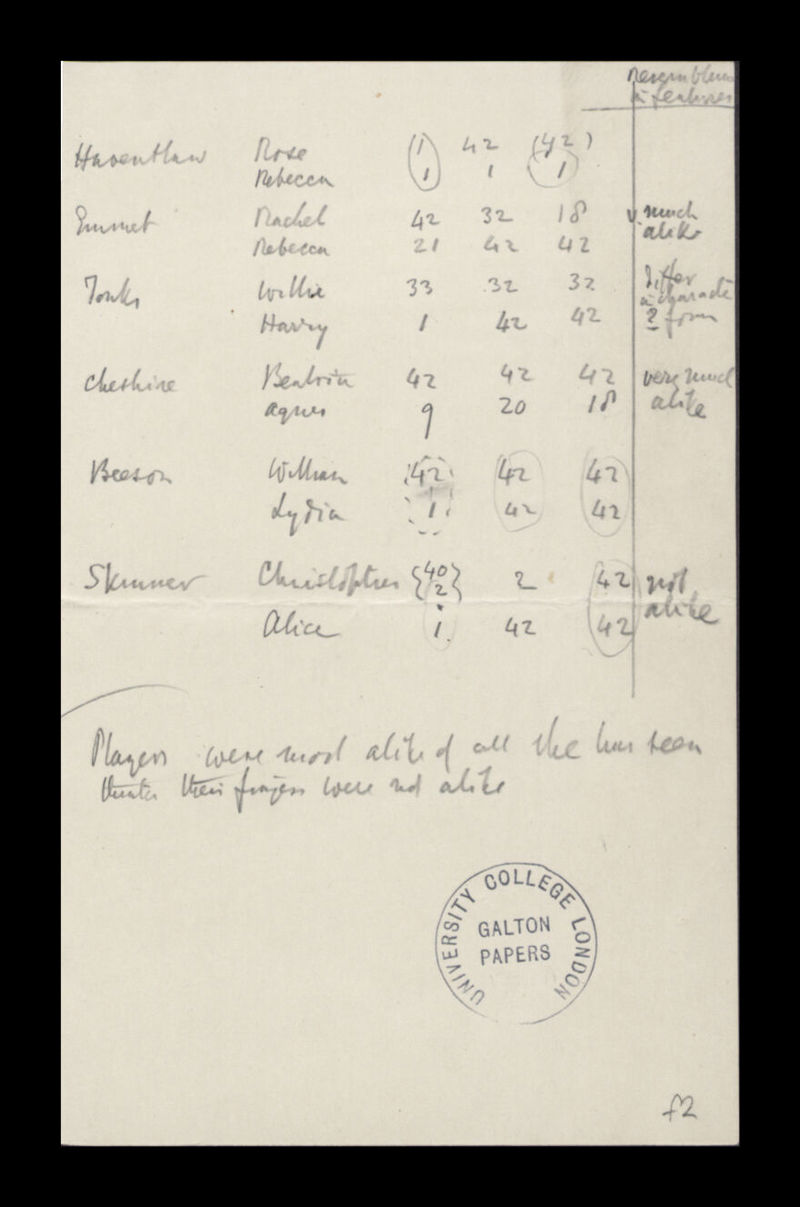 Resemblance
in features
Rose (1 42 (42)
Rebecca 1 1 1
Emmet Rachel 42 32 18 v. much
alike
Rebecca 21 42 42
Tonks Willie 33 32 32 differ
in character
Harry 1 42 42 ? form
Cheshire Beatrice 42 42 42 very much
Agnes 9 20 18 alike
Beeson William 42 42 42
Lydia 1 42 42
Skinner Christopher {40 2} 2 42 not
alike
Alice 1. 42 42
Players were most alike of all she has seen
their fingers were not alike
UNIVERSITY COLLEGE LONDON
GALTON
PAPERS
f2